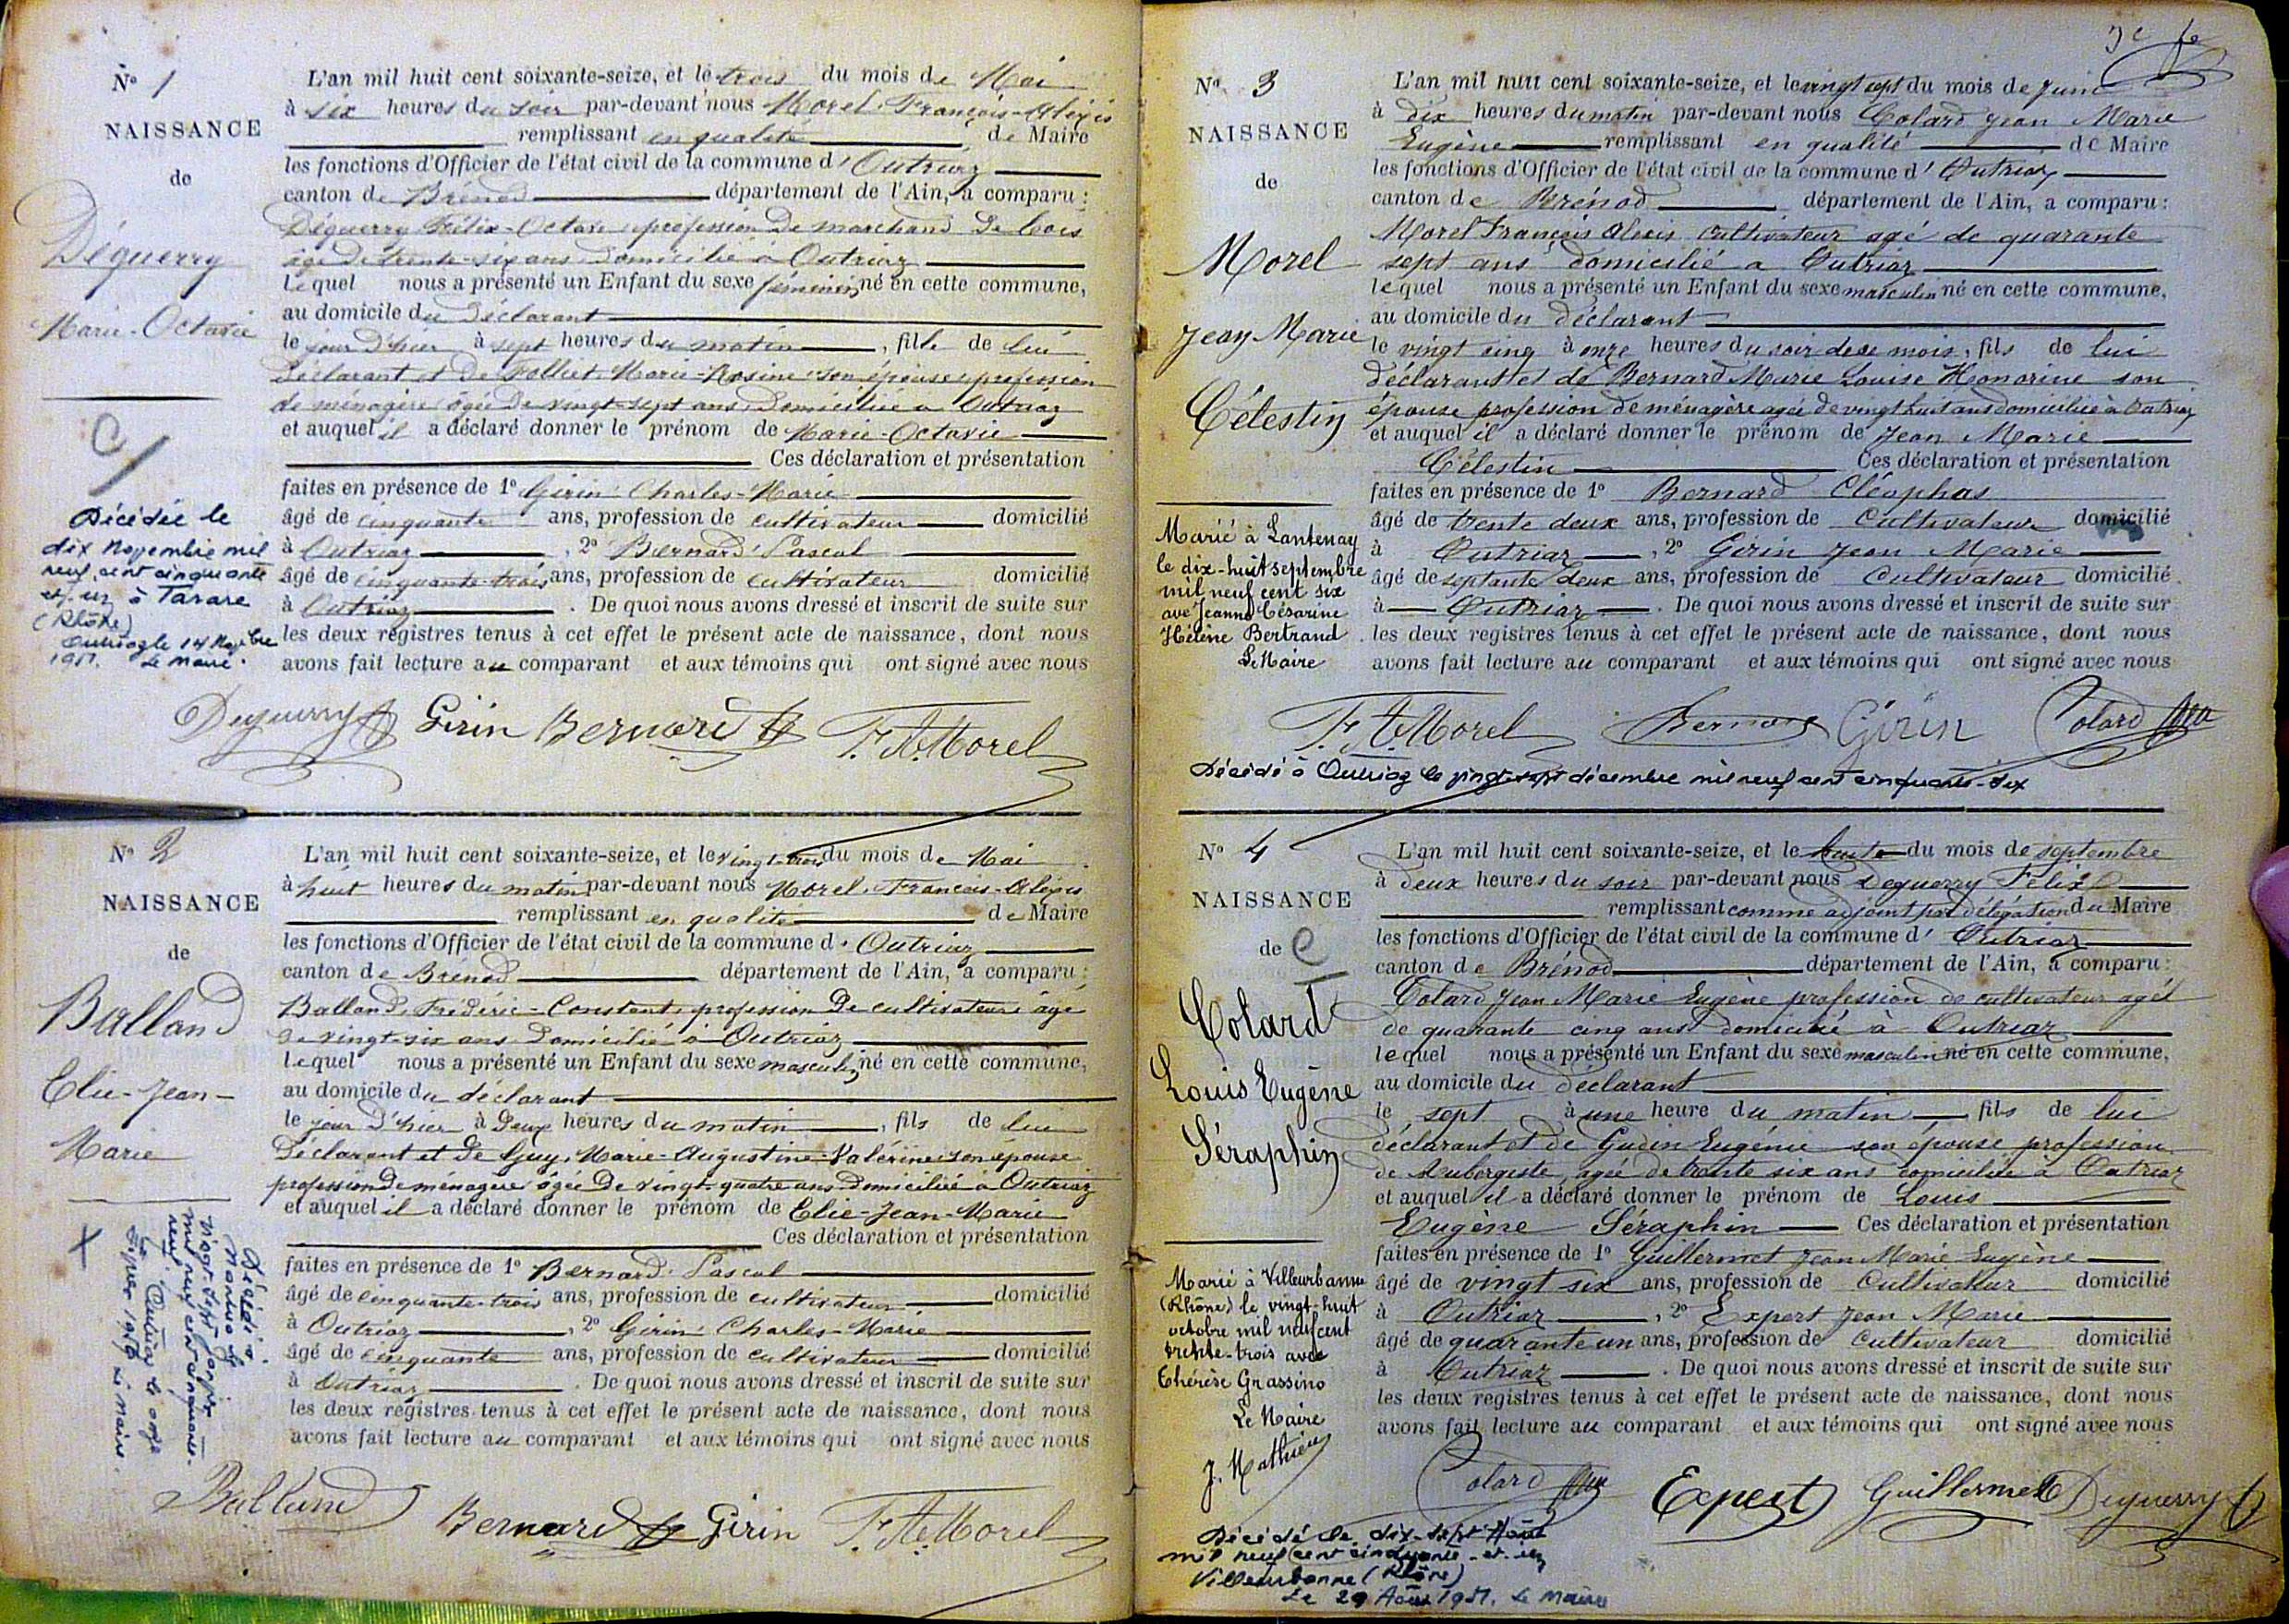 N° 1
NAISSANCE
de
Déguerry
Marie-Octavie
Décédée le
dix Novembre mil
neuf cent cinquante
et un à Tarare
(Rhône)
Outriaz le 14 Novembre
1951. Le Maire.
L'an mil huit cent soixante-seize, et le trois du mois de Mai
à six heures du soir par-devant nous Morel François-Alexis
remplissant en qualité de Maire
les fonctions d'Officier de l'état civil de la commune d'Outriaz
canton de Brénod département de l'Ain, a comparu :
Déguerry Félix-Octave profession de marchand de bois
âgé de trente-six ans domicilié à Outriaz
lequel nous a présenté un Enfant du sexe féminin né en cette commune,
au domicile du déclarant
le jour d'hier à sept heures du matin, fille de lui
déclarant et de Folliet Marie-Rosine son épouse profession
de ménagère âgée de vingt-sept ans domiciliée à Outriaz
et auquel il a déclaré donner le prénom de Marie-Octavie
Ces déclaration et présentation
faites en présence de 1° Girin Charles-Marie
âgé de cinquante ans, profession de cultivateur domicilié
à Outriaz, 2° Bernard Pascal
âgé de cinquante-trois ans, profession de cultivateur domicilié
à Outriaz. De quoi nous avons dressé et inscrit de suite sur
les deux registres tenus à cet effet le présent acte de naissance, dont nous
avons fait lecture au comparant et aux témoins qui ont signé avec nous
Deguerry Girin Bernard F. A. Morel
N° 2
NAISSANCE
de
Balland
Elie-Jean-
Marie
Décédé à
Nantua le
vingt-sept janvier
mil neuf cent cinquante-
neuf.
Outriaz le onze
février 1959 Le Maire.
L'an mil huit cent soixante-seize, et le vingt-trois du mois de Mai
à huit heures du matin par-devant nous Morel François-Alexis
remplissant en qualité de Maire
les fonctions d'Officier de l'état civil de la commune d'Outriaz
canton de Brénod département de l'Ain, a comparu :
Balland Frédéric-Constant profession de cultivateur âgé
de vingt-six ans domicilié à Outriaz
lequel nous a présenté un Enfant du sexe masculin né en cette commune,
au domicile du déclarant
le jour d'hier à deux heures du matin, fils de lui
déclarant et de Guy Marie-Augustine-Valérine son épouse
profession de ménagère âgée de vingt-quatre ans domiciliée à Outriaz
et auquel il a déclaré donner le prénom de Elie-Jean-Marie
Ces déclaration et présentation
faites en présence de 1° Bernard Pascal
âgé de cinquante-trois ans, profession de cultivateur domicilié
à Outriaz, 2° Girin Charles-Marie
âgé de cinquante ans, profession de cultivateur domicilié
à Outriaz. De quoi nous avons dressé et inscrit de suite sur
les deux registres tenus à cet effet le présent acte de naissance, dont nous
avons fait lecture au comparant et aux témoins qui ont signé avec nous
Balland Bernard Girin F. A. Morel
N° 3
NAISSANCE
de
Morel
Jean Marie
Célestin
Marié à Lantenay
le dix-huit septembre
mil neuf cent six
avec Jeanne Césarine
Hélène Bertrand
Le Maire
L'an mil huit cent soixante-seize, et le vingt sept du mois de Juin
à dix heures du matin par-devant nous Colard Jean Marie
Eugène remplissant en qualité de Maire
les fonctions d'Officier de l'état civil de la commune d'Outriaz
canton de Brénod département de l'Ain, a comparu :
Morel François Alexis cultivateur agé de quarante
sept ans domicilié a Outriaz
lequel nous a présenté un Enfant du sexe masculin né en cette commune,
au domicile du déclarant
le vingt cinq à onze heures du soir de ce mois, fils de lui
déclarant et de Bernard Marie Louise Honorine son
épouse profession de ménagère agée de vingt huit ans domiciliée à Outriaz
et auquel il a déclaré donner le prénom de Jean Marie
Célestin Ces déclaration et présentation
faites en présence de 1° Bernard Cléophas
âgé de trente deux ans, profession de Cultivateur domicilié
à Outriaz, 2° Girin Jean Marie
âgé de septante deux ans, profession de Cultivateur domicilié
à Outriaz. De quoi nous avons dressé et inscrit de suite sur
les deux registres tenus à cet effet le présent acte de naissance, dont nous
avons fait lecture au comparant et aux témoins qui ont signé avec nous
F. A. Morel Bernard Girin Colard
Décédé à Outriaz le vingt-sept décembre mil neuf cent cinquante-six
N° 4
NAISSANCE
de
Colard
Louis Eugène
Séraphin
Marié à Villeurbanne
(Rhône) le vingt-huit
octobre mil neuf cent
trente-trois avec
Thérèse Grassino
Le Maire
J. Mathieu
L'an mil huit cent soixante-seize, et le huit du mois de septembre
à deux heures du soir par-devant nous Deguerry Félix O
remplissant comme adjoint par délégation du Maire
les fonctions d'Officier de l'état civil de la commune d'Outriaz
canton de Brénod département de l'Ain, a comparu :
Colard Jean Marie Eugène profession de cultivateur agé
de quarante cinq ans domicilié à Outriaz
lequel nous a présenté un Enfant du sexe masculin né en cette commune,
au domicile du déclarant
le sept à une heure du matin fils de lui
déclarant et de Gudin Eugénie son épouse profession
de Aubergiste, agée de trente six ans domiciliée à Outriaz
et auquel il a déclaré donner le prénom de Louis
Eugène Séraphin Ces déclaration et présentation
faites en présence de 1° Guillermet Jean Marie Eugène
âgé de vingt six ans, profession de Cultivateur domicilié
à Outriaz, 2° Expert Jean Marie
âgé de quarante un ans, profession de Cultivateur domicilié
à Outriaz. De quoi nous avons dressé et inscrit de suite sur
les deux registres tenus à cet effet le présent acte de naissance, dont nous
avons fait lecture au comparant et aux témoins qui ont signé avec nous
Colard Expert Guillermet Deguerry
Décédé le dix-sept Août
mil neuf cent cinquante-et-un
Villeurbanne (Rhône)
Le 29 Août 1951. Le Maire